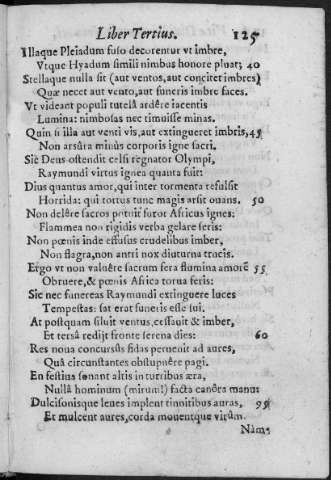 Liber Tertius. 125
Illaque Pleiadum fuso decorentur vt imbre,
Vtque Hyadum simili nimbus honore pluat; 40
Stellaque nulla sit (aut ventos, aut concitet imbres)
Quæ necet aut vento, aut funeris imbre faces.
Vt videant populi tutelâ ardêre iacentis
Lumina: nimbosas nec timuisse minas.
Quin si illa aut venti vis, aut extingueret imbris, 45
Non arsûra minùs corporis igne sacri.
Sic Deus ostendit celsi regnator Olympi,
Raymundi virtus ignea quanta fuit:
Dius quantus amor, qui inter tormenta refulsit
Horrida: qui tottus tunc magis arsit ouans. 50
Non delêre sacros potuit furor Africus ignes:
Flammea non rigidis verba gelare feris:
Non pœnis inde effusus crudelibus imber,
Non flagra, non antri nox diuturna trucis.
Ergo vt non valuêre sacrum fera flumina amorē 55
Obruere, & pœnis Africa torua feris:
Sic nec funereas Raymundi extinguere luces
Tempestas: sat erat funeris esse sui.
At postquam siluit ventus, cessauit & imber,
Et tersâ redijt fronte serena dies: 60
Res noua concursûs fidas peruenit ad aures,
Quâ circunstantes obstupuêre pagi.
En festius sonant altis in turribus æra,
Nullâ hominum (mirum!) facta canôra manu:
Dulcisonisque leues implent tinnitibus auras, 95
Et mulcent aures, corda mouentque virûm.
Nam-